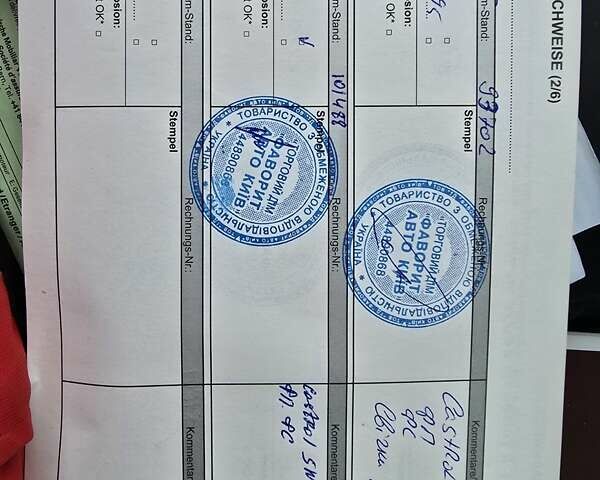 CHWEISE (2/6)
m-Stand:
93702
Stempel
Rechnungs-Nr.:
ТОВАРИСТВО З ОБМЕЖЕНОЮ ВІДПОВІДАЛЬНІСТЮ
УКРАЇНА
"ТОРГОВИЙ ДІМ
"ФАВОРИТ
АВТО КИЇВ"
44890868
Kommentare
Castrol
ФП
ФС
Свічки
osion:
t OK*
m-Stand:
101488
Stempel
Rechnungs-Nr.:
ТОВАРИСТВО З ОБМЕЖЕНОЮ ВІДПОВІДАЛЬНІСТЮ
УКРАЇНА
"ТОРГОВИЙ ДІМ
"ФАВОРИТ
АВТО КИЇВ"
Kommentare
Castrol 5W
ФП. ФС
osion:
t OK*
m-Stand:
Stempel
Rechnungs-Nr.:
Kommentare
osion:
t OK*
Stempel